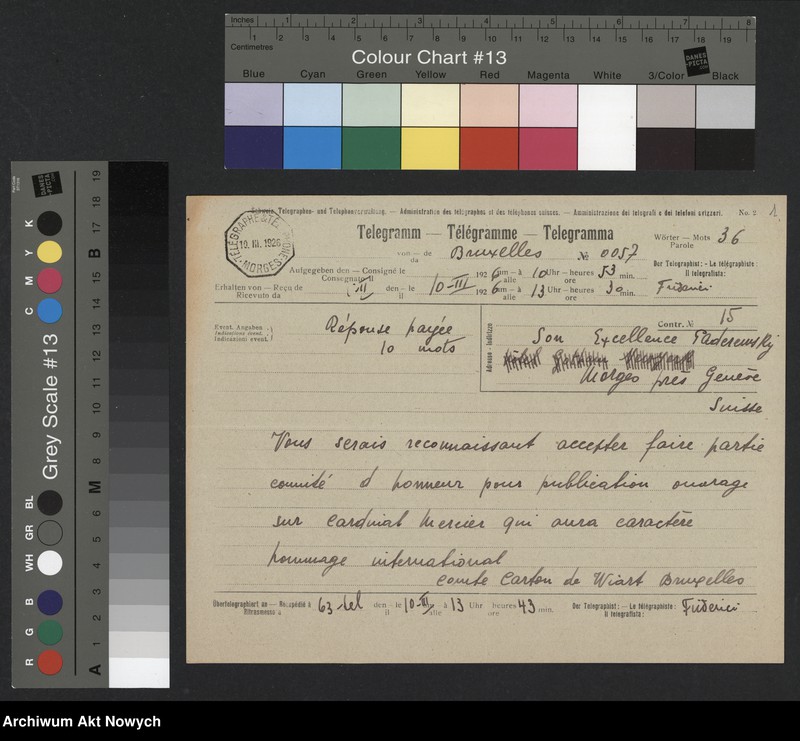 Inches 1 2 3 4 5 6 7 8
Centimetres 1 2 3 4 5 6 7 8 9 10 11 12 13 14 15 16 17 18 19
Colour Chart #13
DANES-PICTA
Blue Cyan Green Yellow Red Magenta White 3/Color Black
Grey Scale #13
R G B WH GR BL C M Y K
A 1 2 3 4 5 6 M 8 9 10 11 12 13 14 15 B 17 18 19
DANES-PICTA
Schweiz. Telegraphen- und Telephonverwaltung. — Administration des télégraphes et des téléphones suisses. — Amministrazione dei telegrafi e dei telefoni svizzeri. No. 2 1.
Telegramm — Télégramme — Telegramma
TÉLÉGRAPHE & TÉLÉPHONE
10.III.1926
MORGES
Wörter — Mots 36
Parole
von — de Bruxelles № 0057
da
Der Telegraphist: — Le télégraphiste:
Il telegrafista:
Aufgegeben den — Consigné le 10-III 1926 um — à 10 Uhr — heures 53 min.
Consegnato il alle ore
Erhalten von — Reçu de den — le 1926 um — à 13 Uhr — heures 30 min.
Ricevuto da il alle ore
Friderici
Event. Angaben
Indications évent.
Indicazioni event.
Réponse payée
10 mots
Adresse - Indirizzo
Contr. № 15
Son Excellence Paderewsky
Morges près Genève
Suisse
Vous serais reconnaissant accepter faire partie
comité d honneur pour publication ouvrage
sur cardinal Mercier qui aura caractère
hommage international
comte Carton de Wiart Bruxelles
Übertelegraphiert an — Réexpédié à 63 tel den — le 10-III um — à 13 Uhr heures 43 min.
Ritrasmesso a il alle ore
Der Telegraphist: — Le télégraphiste: Friderici
Il telegrafista:
Archiwum Akt Nowych